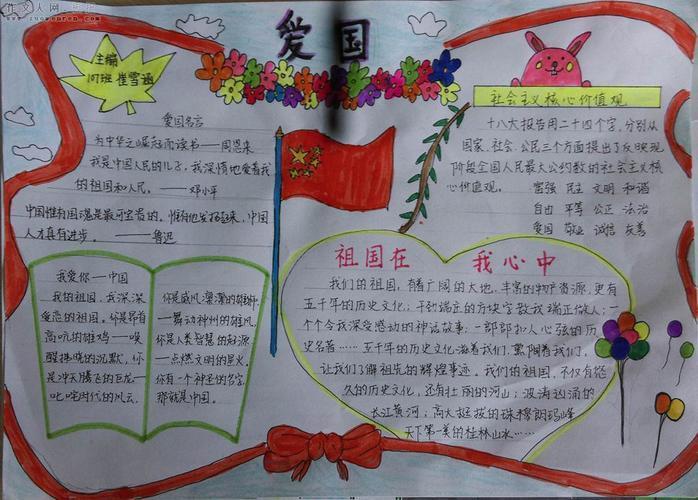 作文人网
www.zuowenren.com
爱国
主编
107班 崔雪涵
爱国名言
为中华之崛起而读书——周恩来
我是中国人民的儿子，我深情地爱着我
的祖国和人民。——邓小平
中国惟有国魂是最可宝贵的。惟有他发扬起来，中国
人才真有进步。——鲁迅
社会主义核心价值观
十八大报告用二十四个字，分别从
国家、社会、公民三个方面提出了反映现
阶段全国人民最大公约数的社会主义核
心价值观。 富强 民主 文明 和谐
自由 平等 公正 法治
爱国 敬业 诚信 友善
我爱你——中国
我的祖国，我深深
爱恋的祖国。你是昂首
高吭的雄鸡——唤
醒拂晓的沉默，你
是冲天腾飞的巨龙——
叱咤时代的风云，
你是威风凛凛的雄狮
——舞动神州的雄风，
你是人类智慧的起源
——点燃文明的星火。
你有一个神圣的名字，
那就是中国。
祖国在 我心中
我们的祖国，有着广阔的大地，丰富的物产资源，更有
五千年的历史文化；干
端正的方块字教我端正做人；一
个个令我深受感动的神话故事；一部部扣人心弦的历
史名著……五千年的历史文化滋养着我们，熏陶着我们，
让我们了解祖先的辉煌事迹。我们的祖国，不仅有悠
久的历史文化，还有壮丽的河山；波涛汹涌的
长江黄河；高大挺拔的珠穆朗玛峰
天下第一美的桂林山水……